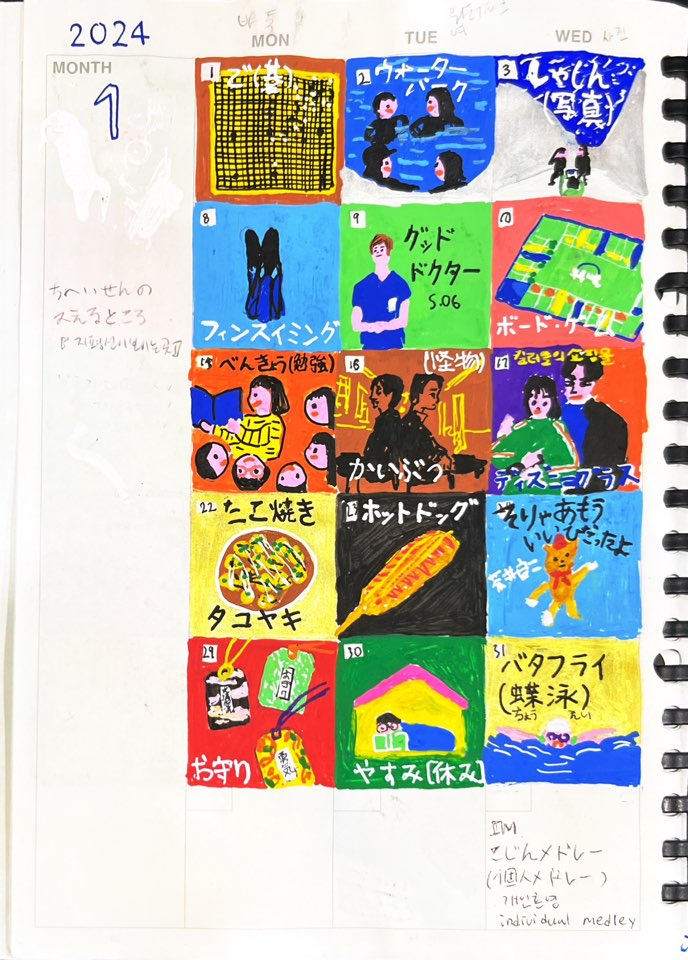 2024
바둑
MON
TUE
WED 사진
MONTH
1
1 ご(碁)
2 ウォーター
パーク
3 しゃしん
(写真)
8
フィンスイミング
9
グッド
ドクター
S.06
10
ボード・ゲーム
ちへいせんの
みえるところ
15 べんきょう(勉強)
16 (怪物)
かいぶつ
17 킬러들의 쇼핑몰
ディズニプラス
22 たこ焼き
タコヤキ
23 ホットドッグ
そりゃあもう
いいひだったよ
荒井良二
29
お守り
勇気
30
やすみ[休み]
31
バタフライ
(蝶泳)
ちょう えい
IM
こじんメドレー
(個人メドレー)
개인혼영
individual medley